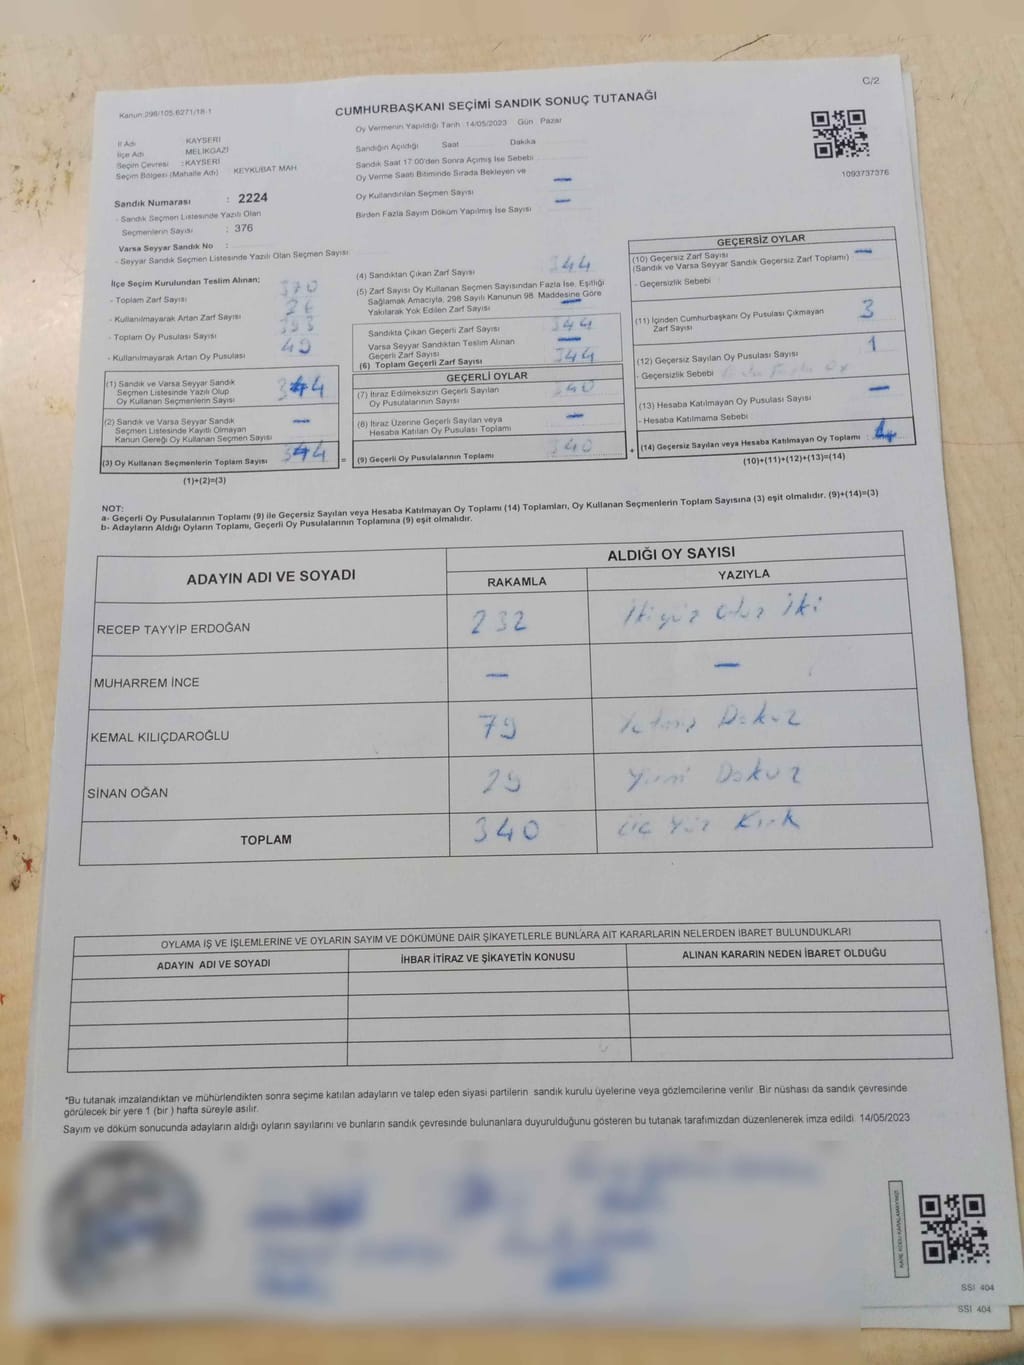 C/2
Kanun:298/105,6271/18-1
CUMHURBAŞKANI SEÇİMİ SANDIK SONUÇ TUTANAĞI
Oy Vermenin Yapıldığı Tarih :14/05/2023 Gün Pazar
İl Adı KAYSERİ
İlçe Adı MELİKGAZİ
Seçim Çevresi :KAYSERİ
Seçim Bölgesi (Mahalle Adı) KEYKUBAT MAH
Sandık Numarası : 2224
- Sandık Seçmen Listesinde Yazılı Olan
Seçmenlerin Sayısı : 376
Varsa Seyyar Sandık No :
- Seyyar Sandık Seçmen Listesinde Yazılı Olan Seçmen Sayısı
Sandığın Açıldığı Saat Dakika
Sandık Saat 17:00'den Sonra Açımış İse Sebebi
Oy Verme Saati Bitiminde Sırada Bekleyen ve
Oy Kullandırılan Seçmen Sayısı —
Birden Fazla Sayım Döküm Yapılmış İse Sayısı —
1093737376
İlçe Seçim Kurulundan Teslim Alınan;
- Toplam Zarf Sayısı 370
- Kullanılmayarak Artan Zarf Sayısı 26
- Toplam Oy Pusulası Sayısı 393
- Kullanılmayarak Artan Oy Pusulası 49
(1) Sandık ve Varsa Seyyar Sandık
Seçmen Listesinde Yazılı Olup
Oy Kullanan Seçmenlerin Sayısı 344
(2) Sandık ve Varsa Seyyar Sandık
Seçmen Listesinde Kayıtlı Olmayan
Kanun Gereği Oy Kullanan Seçmen Sayısı —
(3) Oy Kullanan Seçmenlerin Toplam Sayısı 344 =
(1)+(2)=(3)
(4) Sandıktan Çıkan Zarf Sayısı 344
(5) Zarf Sayısı Oy Kullanan Seçmen Sayısından Fazla İse, Eşitliği
Sağlamak Amacıyla, 298 Sayılı Kanunun 98. Maddesine Göre
Yakılarak Yok Edilen Zarf Sayısı —
Sandıkta Çıkan Geçerli Zarf Sayısı 344
Varsa Seyyar Sandıktan Teslim Alınan
Geçerli Zarf Sayısı —
(6) Toplam Geçerli Zarf Sayısı 344
GEÇERLİ OYLAR
(7) İtiraz Edilmeksizin Geçerli Sayılan
Oy Pusulalarının Sayısı 340
(8) İtiraz Üzerine Geçerli Sayılan veya
Hesaba Katılan Oy Pusulası Toplamı —
(9) Geçerli Oy Pusulalarının Toplamı 340 +
GEÇERSİZ OYLAR
(10) Geçersiz Zarf Sayısı
(Sandık ve Varsa Seyyar Sandık Geçersiz Zarf Toplamı) —
- Geçersizlik Sebebi
(11) İçinden Cumhurbaşkanı Oy Pusulası Çıkmayan
Zarf Sayısı 3
(12) Geçersiz Sayılan Oy Pusulası Sayısı 1
- Geçersizlik Sebebi
(13) Hesaba Katılmayan Oy Pusulası Sayısı —
- Hesaba Katılmama Sebebi
(14) Geçersiz Sayılan veya Hesaba Katılmayan Oy Toplamı : 4
(10)+(11)+(12)+(13)=(14)
NOT:
a- Geçerli Oy Pusulalarının Toplamı (9) ile Geçersiz Sayılan veya Hesaba Katılmayan Oy Toplamı (14) Toplamları, Oy Kullanan Seçmenlerin Toplam Sayısına (3) eşit olmalıdır. (9)+(14)=(3)
b- Adayların Aldığı Oyların Toplamı, Geçerli Oy Pusulalarının Toplamına (9) eşit olmalıdır.
ADAYIN ADI VE SOYADI ALDIĞI OY SAYISI
RAKAMLA YAZIYLA
RECEP TAYYİP ERDOĞAN 232 İkiyüz otuz iki
MUHARREM İNCE — —
KEMAL KILIÇDAROĞLU 79 Yetmiş Dokuz
SİNAN OĞAN 29 Yirmi Dokuz
TOPLAM 340 Üç Yüz Kırk
OYLAMA İŞ VE İŞLEMLERİNE VE OYLARIN SAYIM VE DÖKÜMÜNE DAİR ŞİKAYETLERLE BUNLARA AİT KARARLARIN NELERDEN İBARET BULUNDUKLARI
ADAYIN ADI VE SOYADI İHBAR İTİRAZ VE ŞİKAYETİN KONUSU ALINAN KARARIN NEDEN İBARET OLDUĞU
*Bu tutanak imzalandıktan ve mühürlendikten sonra seçime katılan adayların ve talep eden siyasi partilerin sandık kurulu üyelerine veya gözlemcilerine verilir. Bir nüshası da sandık çevresinde
görülecek bir yere 1 (bir ) hafta süreyle asılır.
Sayım ve döküm sonucunda adayların aldığı oyların sayılarını ve bunların sandık çevresinde bulunanlara duyurulduğunu gösteren bu tutanak tarafımızdan düzenlenerek imza edildi. 14/05/2023
SSI 404
SSI 404